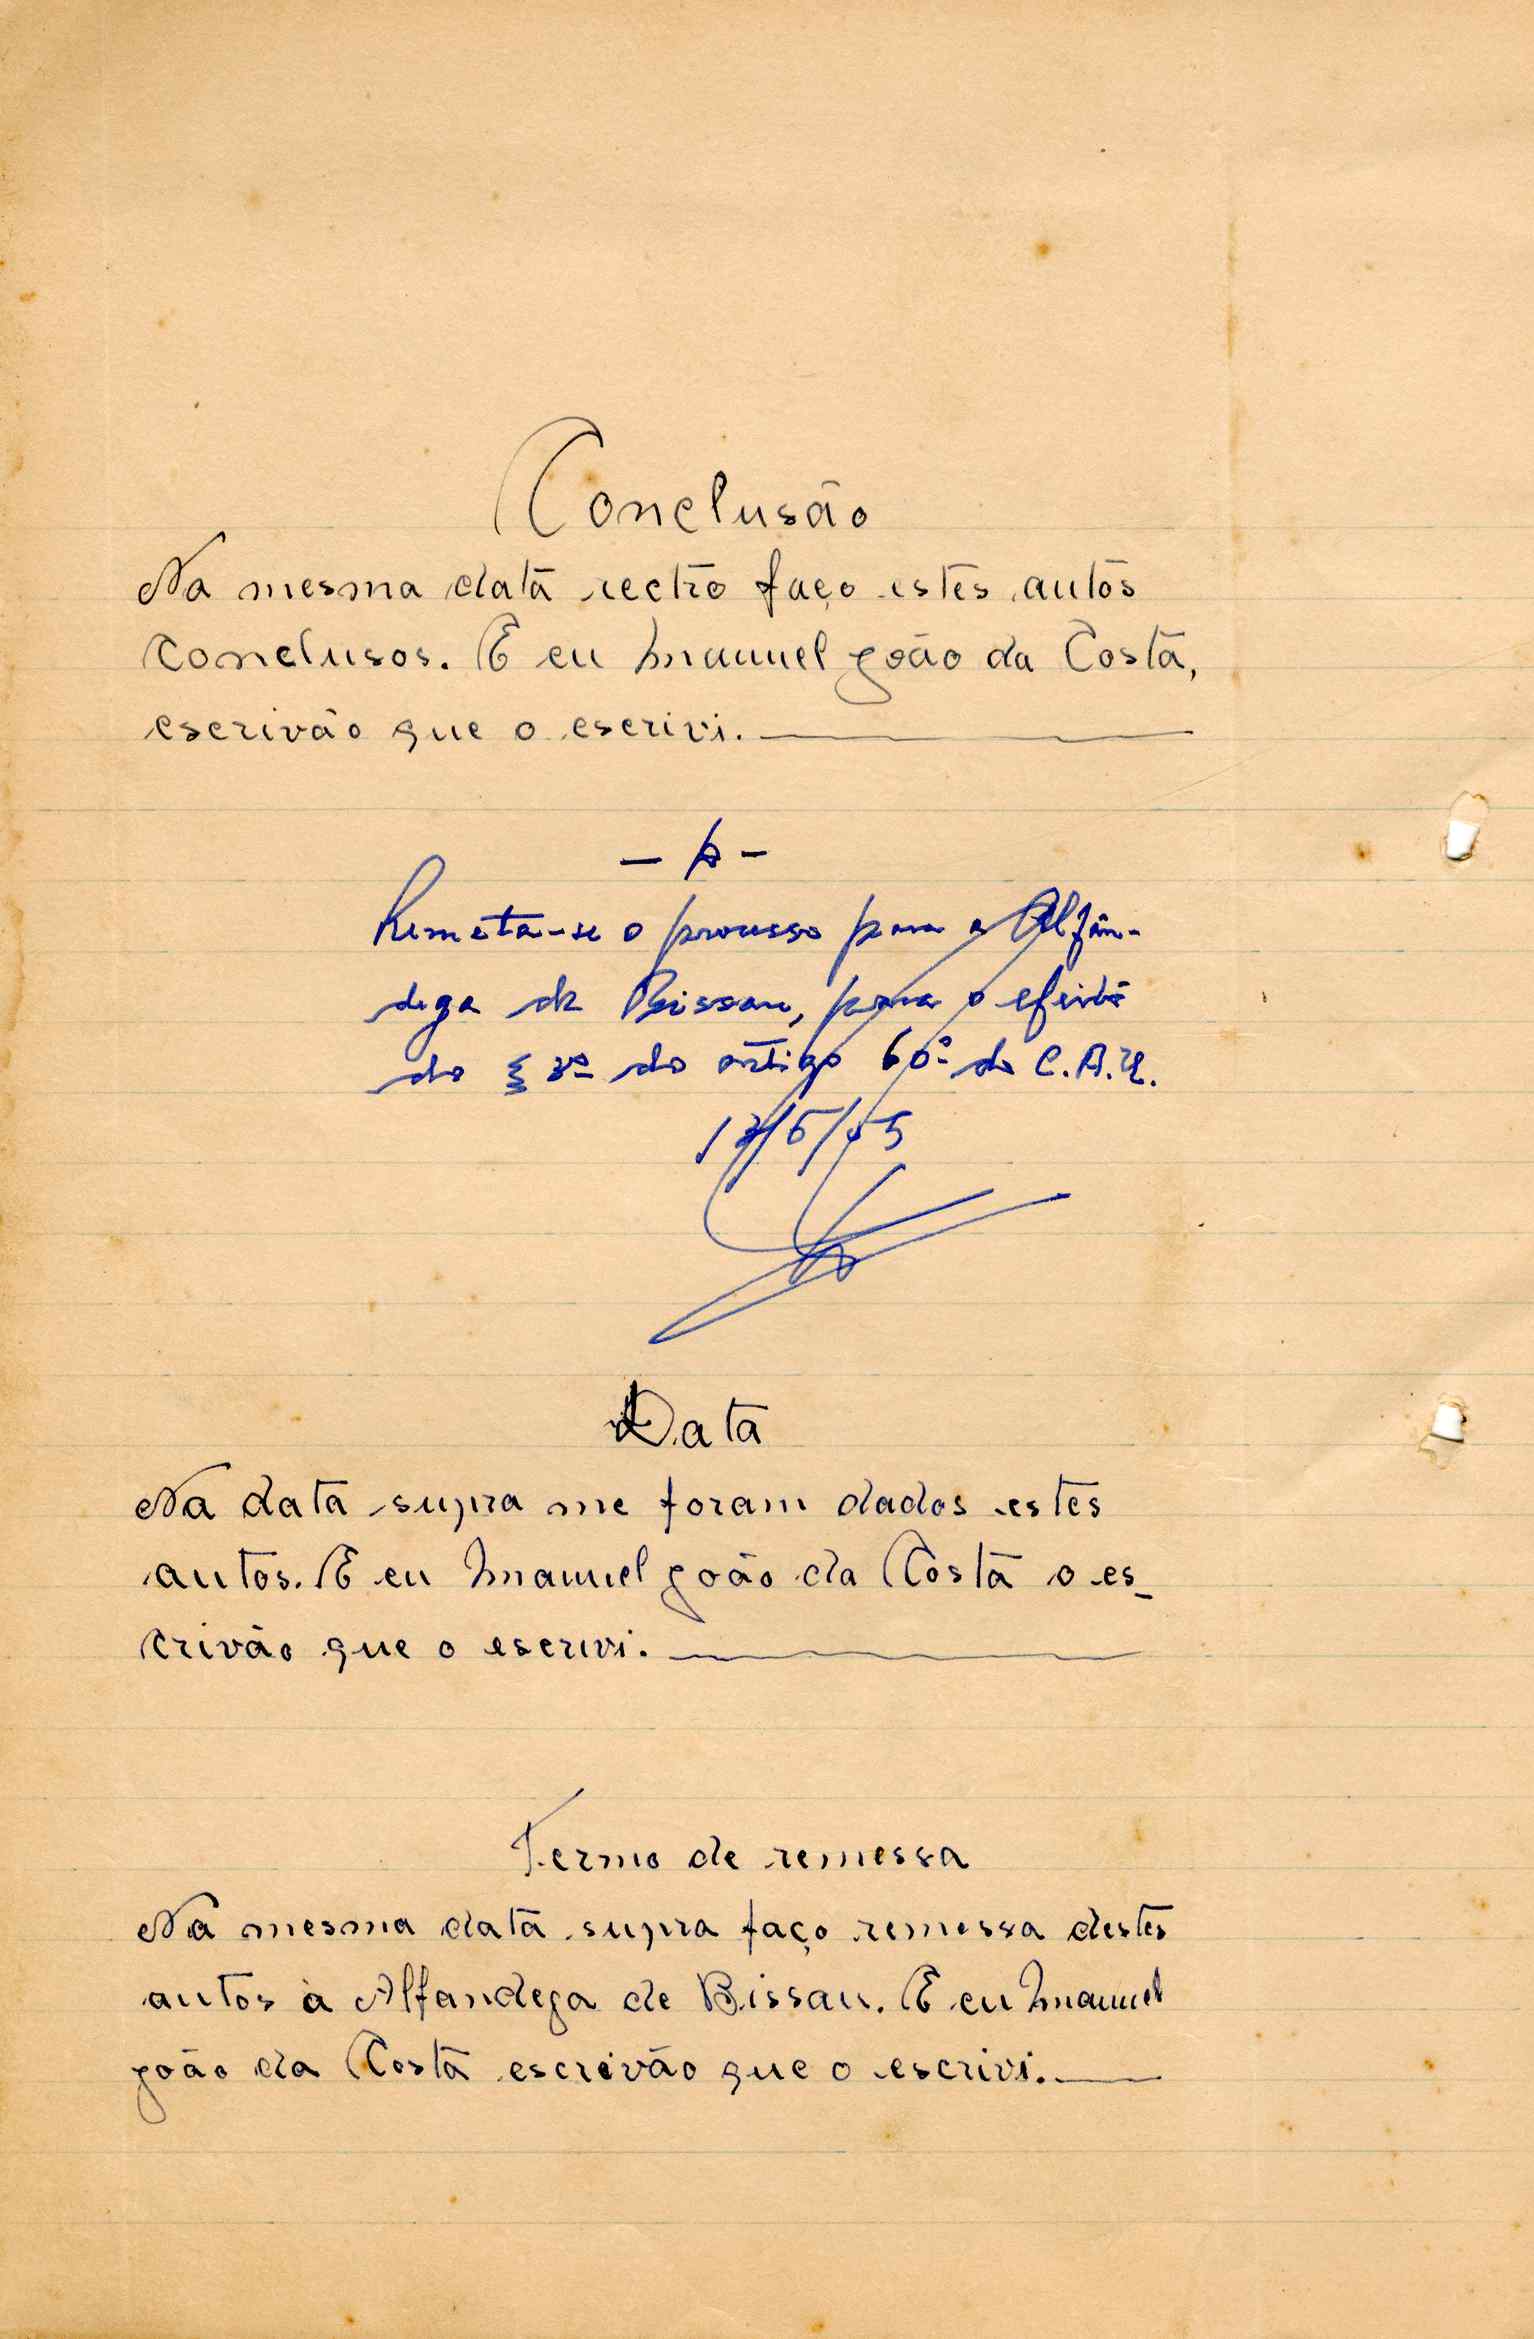 Conclusão
Na mesma data rectro faço estes autos
conclusos. E eu Manuel João da Costa,
escrivão que o escrivi.
- p -
Remeta-se o processo para a Alfân-
dega de Bissau, para o efeito
do § 3º do artigo 60º do C.A.U.
Data
Na data supra me foram dados estes
autos. E eu Manuel João da Costa o es-
crivão que o escrivi.
Termo de remessa
Na mesma data supra faço remessa destes
autos à Alfandega de Bissau. E eu Manuel
João da Costa escrivão que o escrivi.